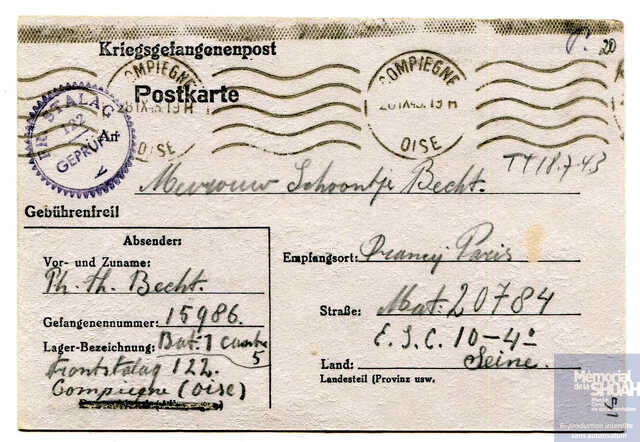 Kriegsgefangenenpost
COMPIEGNE
COMPIEGNE
20
Postkarte
28 IX 43. 19 H
OISE
OISE
FR. STALAG
122
GEPRÜFT
An
TT 18.7.43
Mevrouw Schoontje Becht.
Gebührenfrei!
Absender:
Vor- und Zuname:
Ph. th. Becht.
Gefangenennummer: 15986.
Lager-Bezeichnung: Bat. 1 Chambre 5
Frontstalag 122.
Compiegne (Oise)
Empfangsort: Drancy Paris
Straße: Mat. 20784
E.S.C. 10-4º
Land: Seine.
Landesteil (Provinz usw.
Mémorial
de la SHOAH
Reproduction interdite
sans autorisation